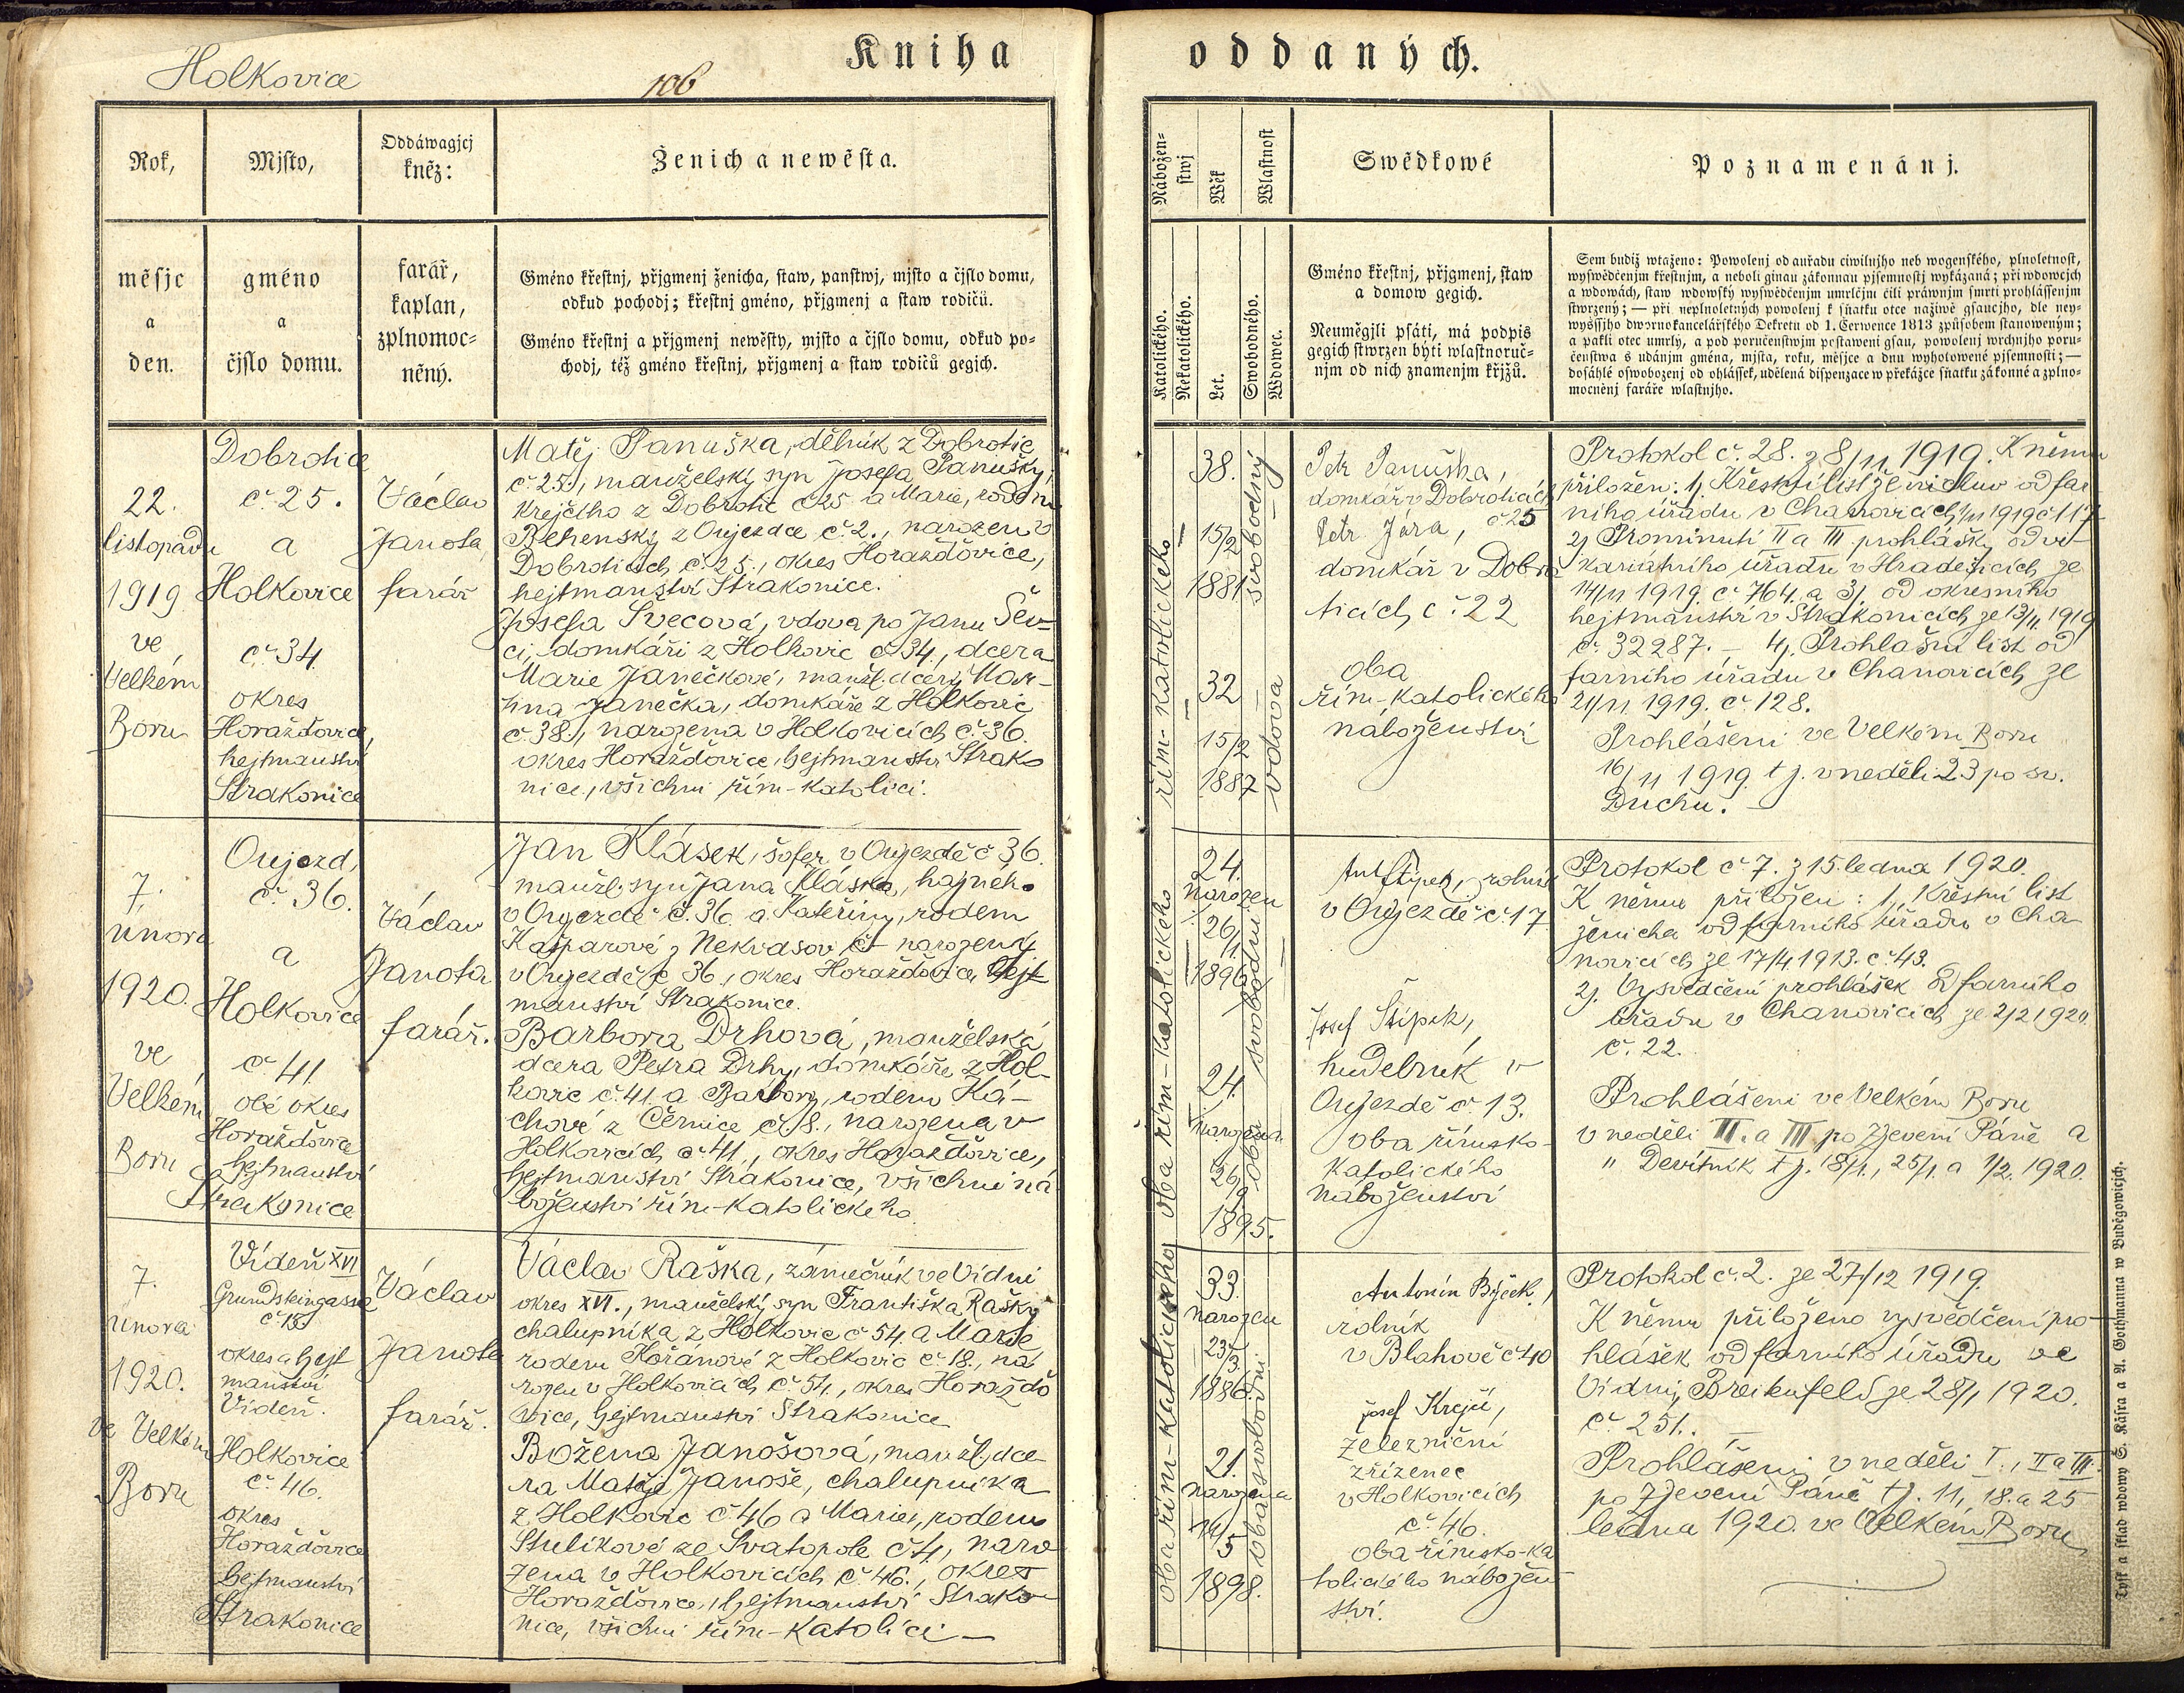 Holkovice
106
Kniha
oddaných.
Rok,
Mjsto,
Oddáwagjcj
kněz:
Ženich a newěsta.
měsjc
a
den.
gméno
a
čjslo domu.
farář,
kaplan,
zplnomoc=
něný.
Gméno křestnj, přjgmenj ženicha, staw, panstwj, mjsto a čjslo domu,
odkud pochodj; křestnj gméno, přjgmenj a staw rodičů.
Gméno křestnj a přjgmenj newěsty, mjsto a čjslo domu, odkud po=
chodj, též gméno křestnj, přjgmenj a staw rodičů gegich.
Nábožen=
stwj
Wěk
Wlastnost
Katolického.
Nekatolického.
Let.
Swobodného.
Wdowec.
Swědkowé
Gméno křestnj, přjgmenj, staw
a domow gegich.
Neumėgjli psáti, má podpis
gegich stwrzen býti wlastnoruč=
njm od nich znamenjm křjžů.
Poznamenánj.
Sem budiž wtaženo: Powolenj od auřadu ciwilnjho neb wogenského, plnoletnost,
wyswědčenjm křestnjm, a neboli ginau zákonnau pjsemnostj wykázaná; při wdowcjch
a wdowách, staw wdowský wyswědčenjm umrlčjm čili práwnjm smrti prohlássenjm
stwrzený; — při neplnoletných powolenj k sňatku otce nažiwě gsaucjho, dle ney=
wyssjho dwornokancelářského Dekretu od 1. Čerwence 1813 způsobem stanoweným;
a pakli otec umrlý, a pod poručenstwjm postaweni gsau, powolenj wrchnjho poru=
čenstwa s udánjm gména, mjsta, roku, měsjce a dnu wyhotowené pjsemnosti; —
dosáhlé oswobozenj od ohlássek, udělená dispenzace w překážce sňatku zákonné a zplno=
mocněnj faráře wlastnjho.
22.
listopadu
1919
ve
Velkém
Boru
Dobrotice
č. 25.
a
Holkovice
č. 34
okres
Horažďovice,
hejtmanství
Strakonice
Václav
Janota,
farář
Matěj Panuška, dělník z Dobrotic
č. 25., manželský syn Josefa Panušky,
krejčího z Dobrotic č 25 a Marie, rodem
z Oujezdce č. 2., narozen v
Dobroticích č. 25., okres Horažďovice,
hejtmanství Strakonice.
Josefa Švecová, vdova po Janu Šev-
ci, domkáři z Holkovic č. 34., dcera
Marie Janečkové, manžl. dcery Mar-
tina Janečka, domkáře z Holkovic
č. 38., narozena v Holkovicích č. 36.
okres Horažďovice, hejtmanství Strako
nice, všichni řím-katolíci.
řím-katolického
38.
15/2
1881
svobodný
32
15/2
1887
vdova
Petr Panuška,
domkář v Dobroticích
č 25
Petr Jára,
domkář v Dobro
ticích č. 22
oba
řím-katolického
náboženství
Protokol č. 28. z 8/11 1919. K němu
přiložen: 1, Křestní list ženichův od far
ního úřadu v Chanovicích 1/11 1919 č 117
2, Prominutí II a III prohlášky od vi-
kariátního úřadu v Hradešicích ze
14/11 1919. č. 764. a 3, od okresního
hejtmanství v Strakonicích ze 13/11 1919
č. 32287. — 4, Prohlašní list od
farního úřadu v Chanovicích ze
21/11 1919. č. 128.
Prohlášeni ve Velkém Boru
16/11 1919. t j. v neděli 23 po sv.
Duchu. —
7.
února
1920.
ve
Velkém
Boru
Oujezd,
č. 36.
a
Holkovice
č 41
obé okres
Horažďovice
hejtmanství
Strakonice
Václav
Janota
farář.
Jan Klásek, šofer v Oujezdě č 36.
manžl. syn Jana Kláska, hajného
v Oujezdě č. 36 a Kateřiny, rodem
Kašparové z Nekvasov č narozený
v Oujezdě č 36, okres Horažďovice, hejt
manství Strakonice.
Barbora Drhová, manželská
dcera Petra Drhy, domkáře z Hol-
kovic č. 41 a Barbory, rodem Ká-
chové z Černice č. 8., narozena v
Holkovicích č. 41., okres Horažďovice,
hejtmanství Strakonice, všichni ná
boženství řím-katolického
oba řím-katolického
24.
narozen
26/11
1896
24.
narozena
26/9
1895.
oba svobodní
Ant Štípek, rolník
v Oujezdě č. 17
Josef Štípek,
hudebník v
Oujezdě č. 13.
oba římsko-
katolického
náboženství
Protokol č. 7. z 15. ledna 1920.
K němu přiložen: 1, Křestní list
ženicha od farního úřadu v Cha-
novicích ze 17/4 1913. č. 43.
2, Vysvědčení prohlášek od farního
úřadu v Chanovicích ze 2/2 1920.
č. 22.
Prohlášeni ve Velkém Boru
v neděli II. a III po Zjevení Páně a
" Devítník t j. 18/1., 25/1. a 1/2. 1920.
7.
února
1920.
ve Velkém
Boru
Vídeň XVI
Grundsteingasse
č 18
okres a hejt
manství
Vídeň.
Holkovice
č. 46.
okres
Horažďovice
hejtmanství
Strakonice
Václav
Janota
farář.
Václav Raška, zámečník ve Vídni
okres XVI., manželský syn Františka Rašky
chalupníka z Holkovic č 54, a Marie
rodem Kořánové z Holkovic č. 18., na
rozen v Holkovicích č. 54., okres Horaždo
vice, hejtmanství Strakonice
Božena Janošová, manžl. dce-
ra Matěje Janoše, chalupníka
z Holkovic č. 46 a Marie, rodem
Stulíkové ze Svatopole č 4, naro
zena v Holkovicích č. 46., okres
Horažďovice, hejtmanství Strako
nice, všichni řím-katolíci —
oba řím-katolického
33.
narozen
23/3
1886.
21.
narozena
14/5
1898.
oba svobodní
Antonín,
rolník
v Blahově č 40
Josef Krejčí,
železniční
zřízenec
v Holkovicích
č. 46.
oba římsko-ka
tolického nábožen
ství.
Protokol č. 2. ze 27/12 1919.
K němu přiloženo vysvědčení pro-
hlášek od farního úřadu ve
Vídni, Breitenfeld ze 28/1 1920.
č. 251. —
Prohlášeni v neděli I., II a III
po Zjevení Páně t j. 11, 18. a 25
ledna 1920. ve Velkém Boru
Tisk a sklad wdowy S. Kásra a A. Gothmanna w Buděgowicjch.